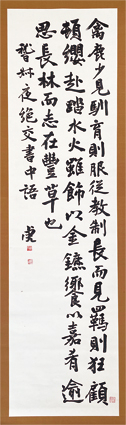 禽鹿少見馴育則服從教制長而見羈則狂顧
頓纓赴蹈水火雖飾以金鑣饗以嘉肴逾
思長林而志在豐草也
嵇叔夜絕交書中語